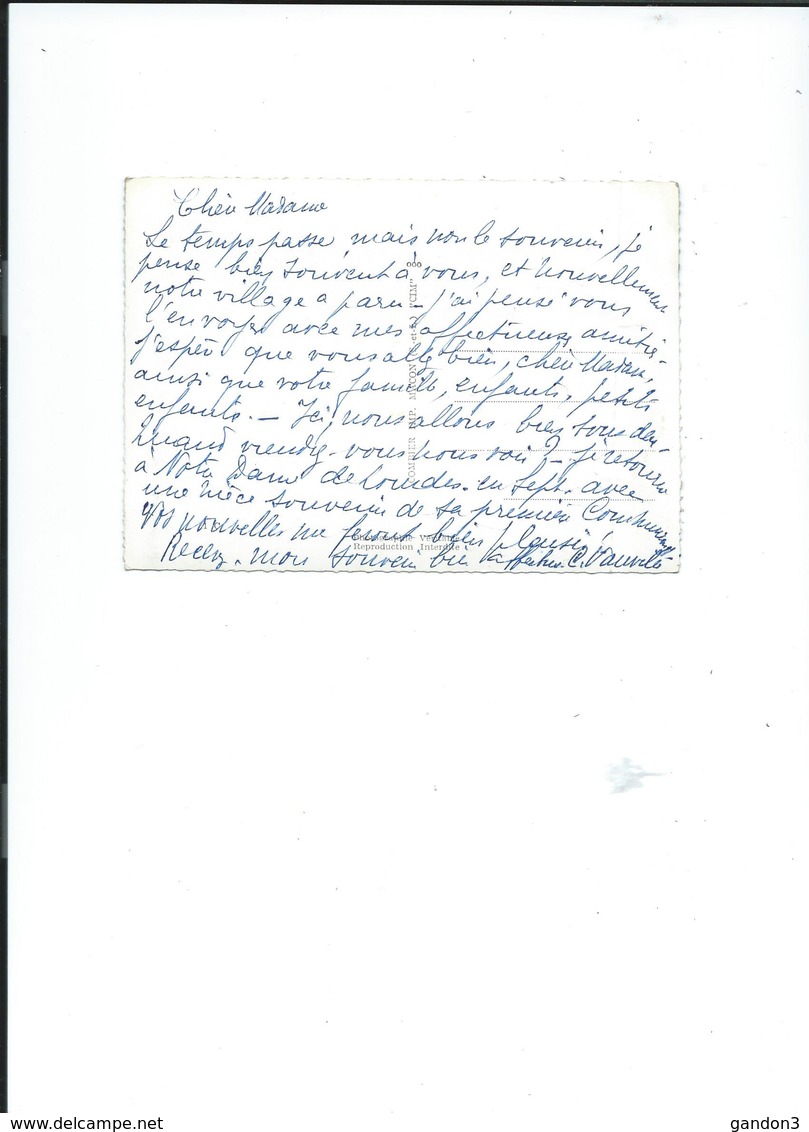 Chère Madame
Le temps passe mais non le souvenir, je
pense bien souvent à vous, et nouvellement
notre village a paru - j'ai pensé vous
l'envoyer avec mes affectueuses amitiés -
j'espère que vous allez bien, chère Madame,
ainsi que votre famille, enfants, petits
enfants. - Ici, nous allons bien tous deux
Quand viendrez-vous nous voir ? - je retourne
à Notre Dame de Lourdes en Sept. avec
une nièce souvenir de sa première Communion
Vos nouvelles me feront bien plaisir
Recevez mon souvenir bien affectueux C.
COMBIER IMP. MACON (S.-et-L.) "CIM"
Photographie Véritable
Reproduction Interdite
delcampe.net
gandon3